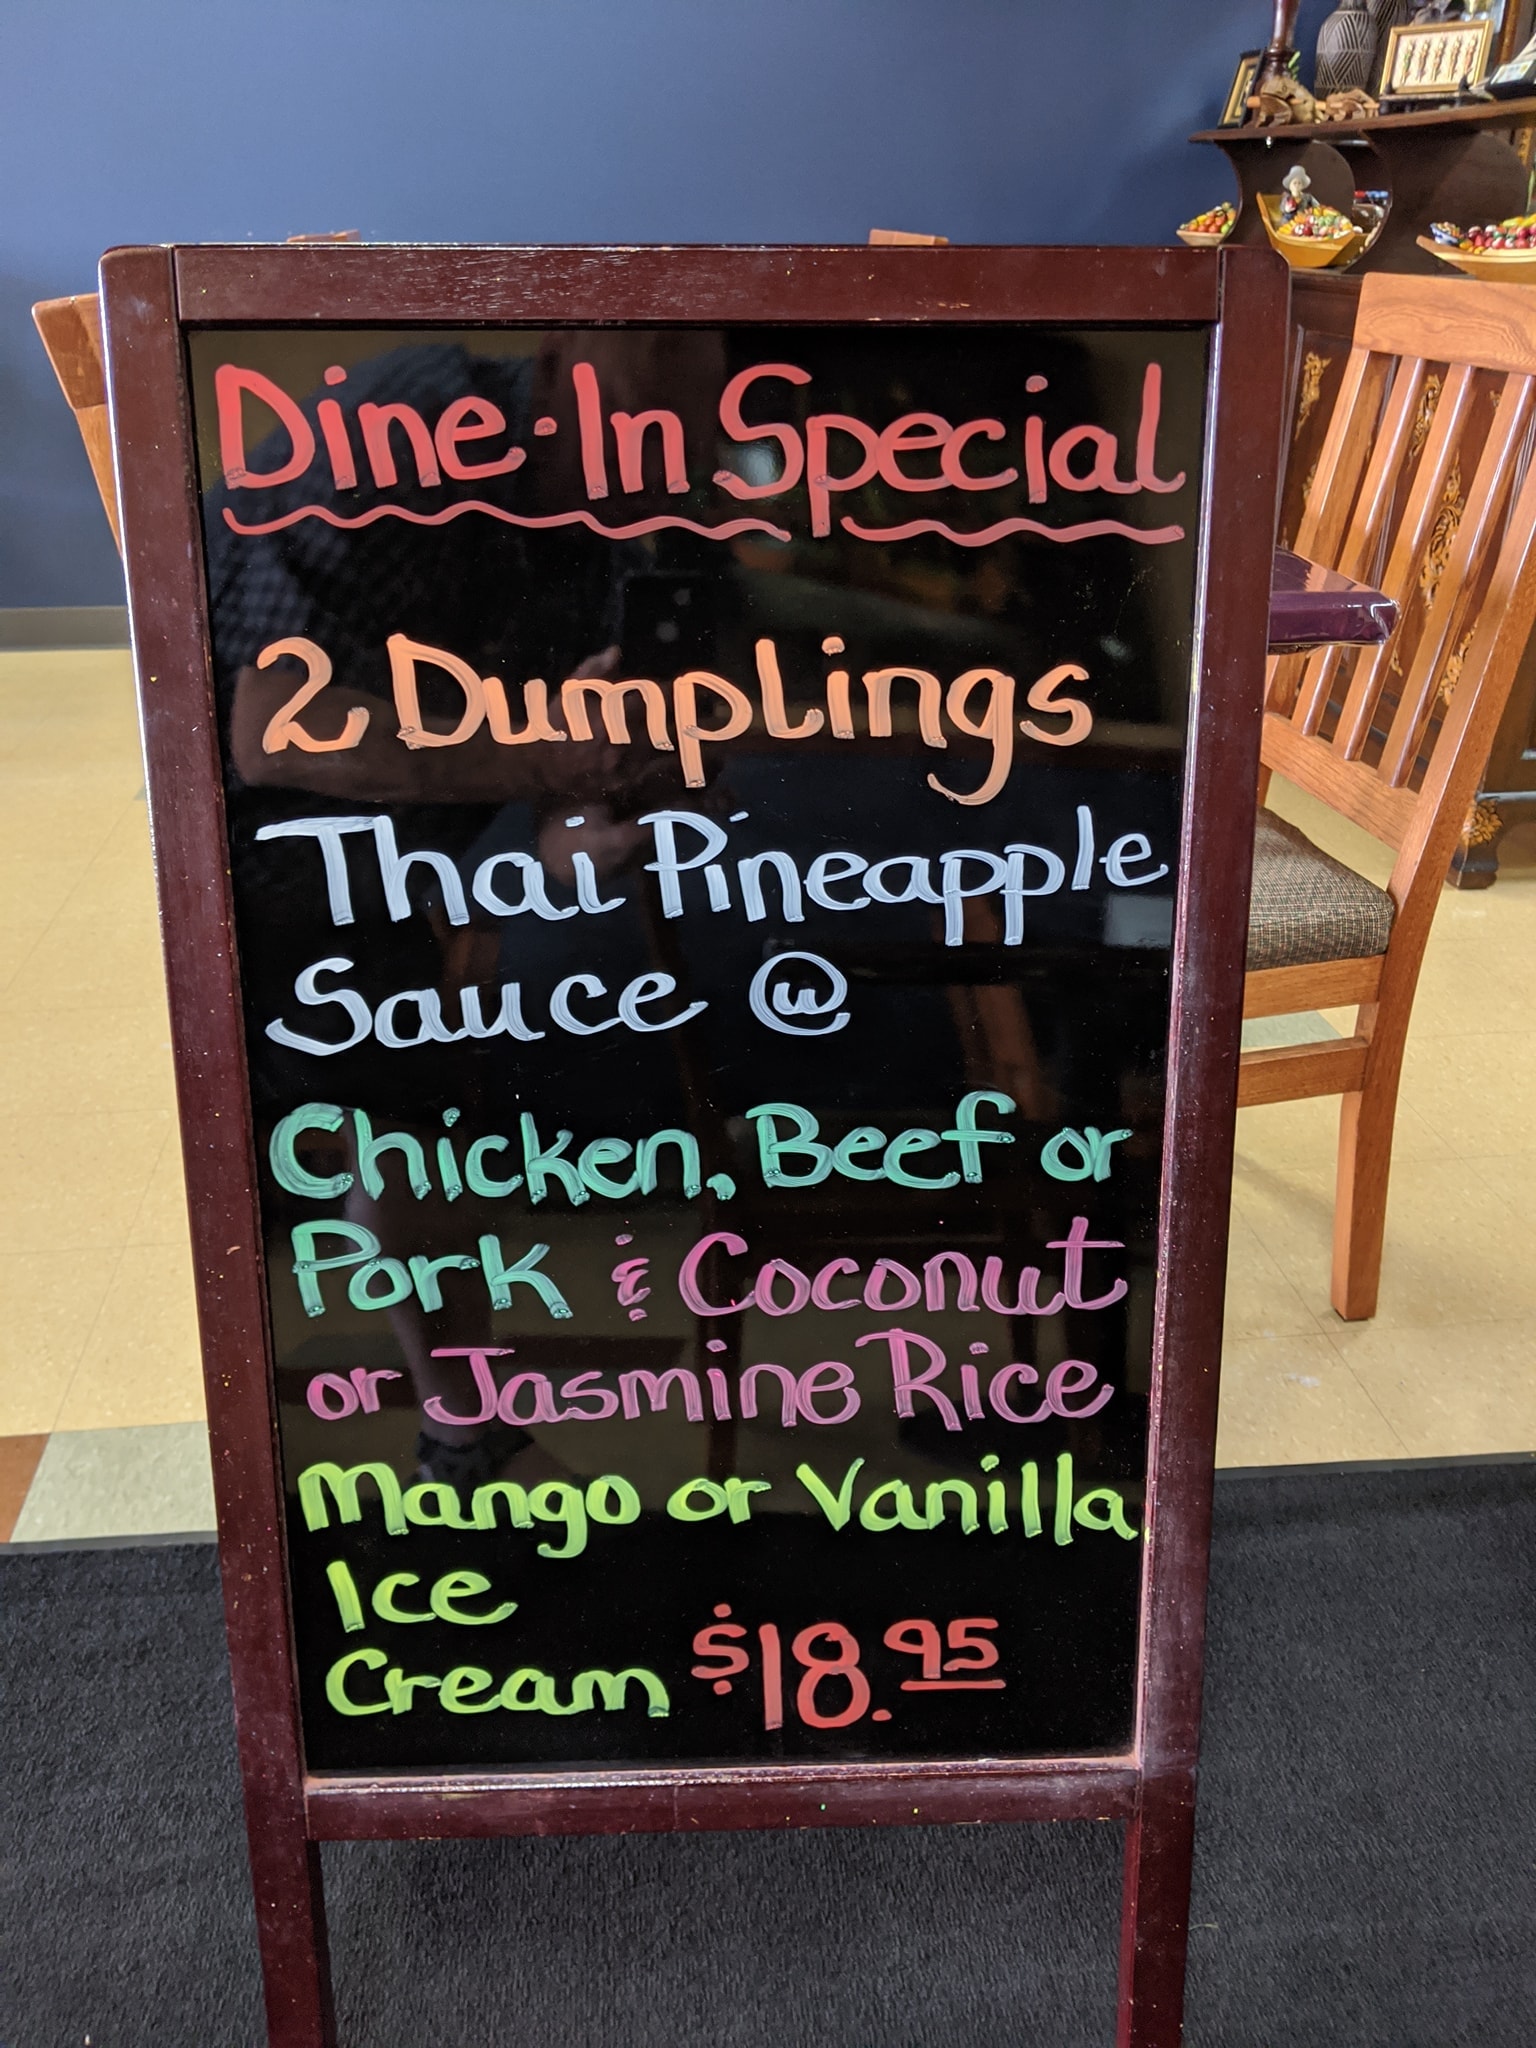 Dine-In Special
2 Dumplings
Thai Pineapple
Sauce ⓦ
Chicken, Beef or
Pork & Coconut
or Jasmine Rice
Mango or Vanilla
Ice
Cream $18.95